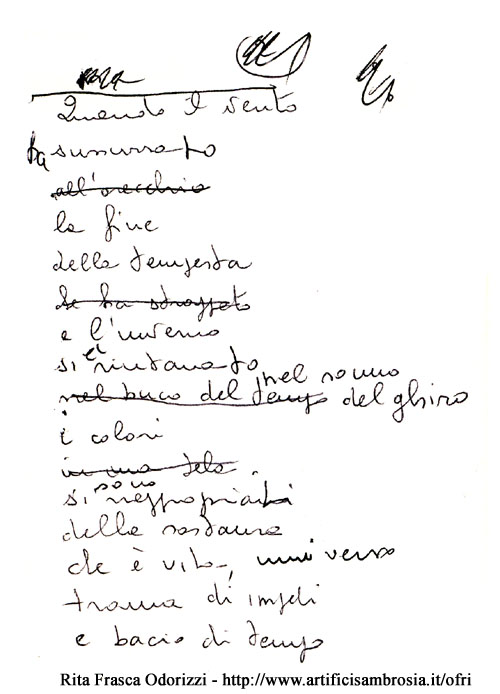 Quando il vento
ha sussurrato
all'orecchio
la fine
della tempesta
e l'inverno
si è rintanato
nel sonno
nel buco del tempo del ghiro
i colori
in una tela
si sono riappropriati
della
che è vita, universo
trama di impeti
e bacio di tempo
Rita Frasca Odorizzi - http://www.artificisambrosia.it/ofri